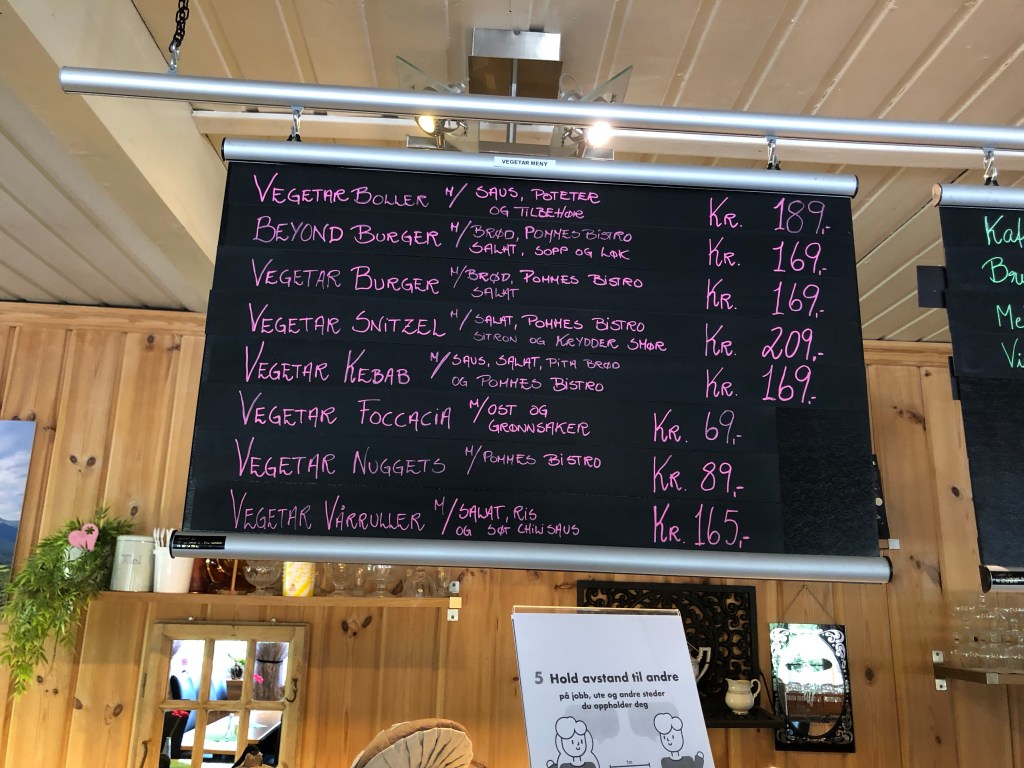 VEGETAR MENY
VEGETAR BOLLER M/ SAUS, POTETER KR. 189,-
OG TILBEHØR
BEYOND BURGER M/BRØD, POMMES BISTRO KR. 169,-
SALAT, SOPP OG LØK
VEGETAR BURGER M/BRØD, POMMES BISTRO KR. 169,-
SALAT
VEGETAR SNITZEL M/SALAT, POMMES BISTRO KR. 209,-
SITRON OG KRYDDER SMØR
VEGETAR KEBAB M/SAUS, SALAT, PITA BRØD KR. 169,-
OG POMMES BISTRO
VEGETAR FOCCACIA M/OST OG KR. 69,-
GRØNNSAKER
VEGETAR NUGGETS M/POMMES BISTRO KR. 89,-
VEGETAR VÅRRULLER M/SALAT, RIS KR. 165,-
OG SØT CHILISAUS
5 Hold avstand til andre
på jobb, ute og andre steder
du oppholder deg